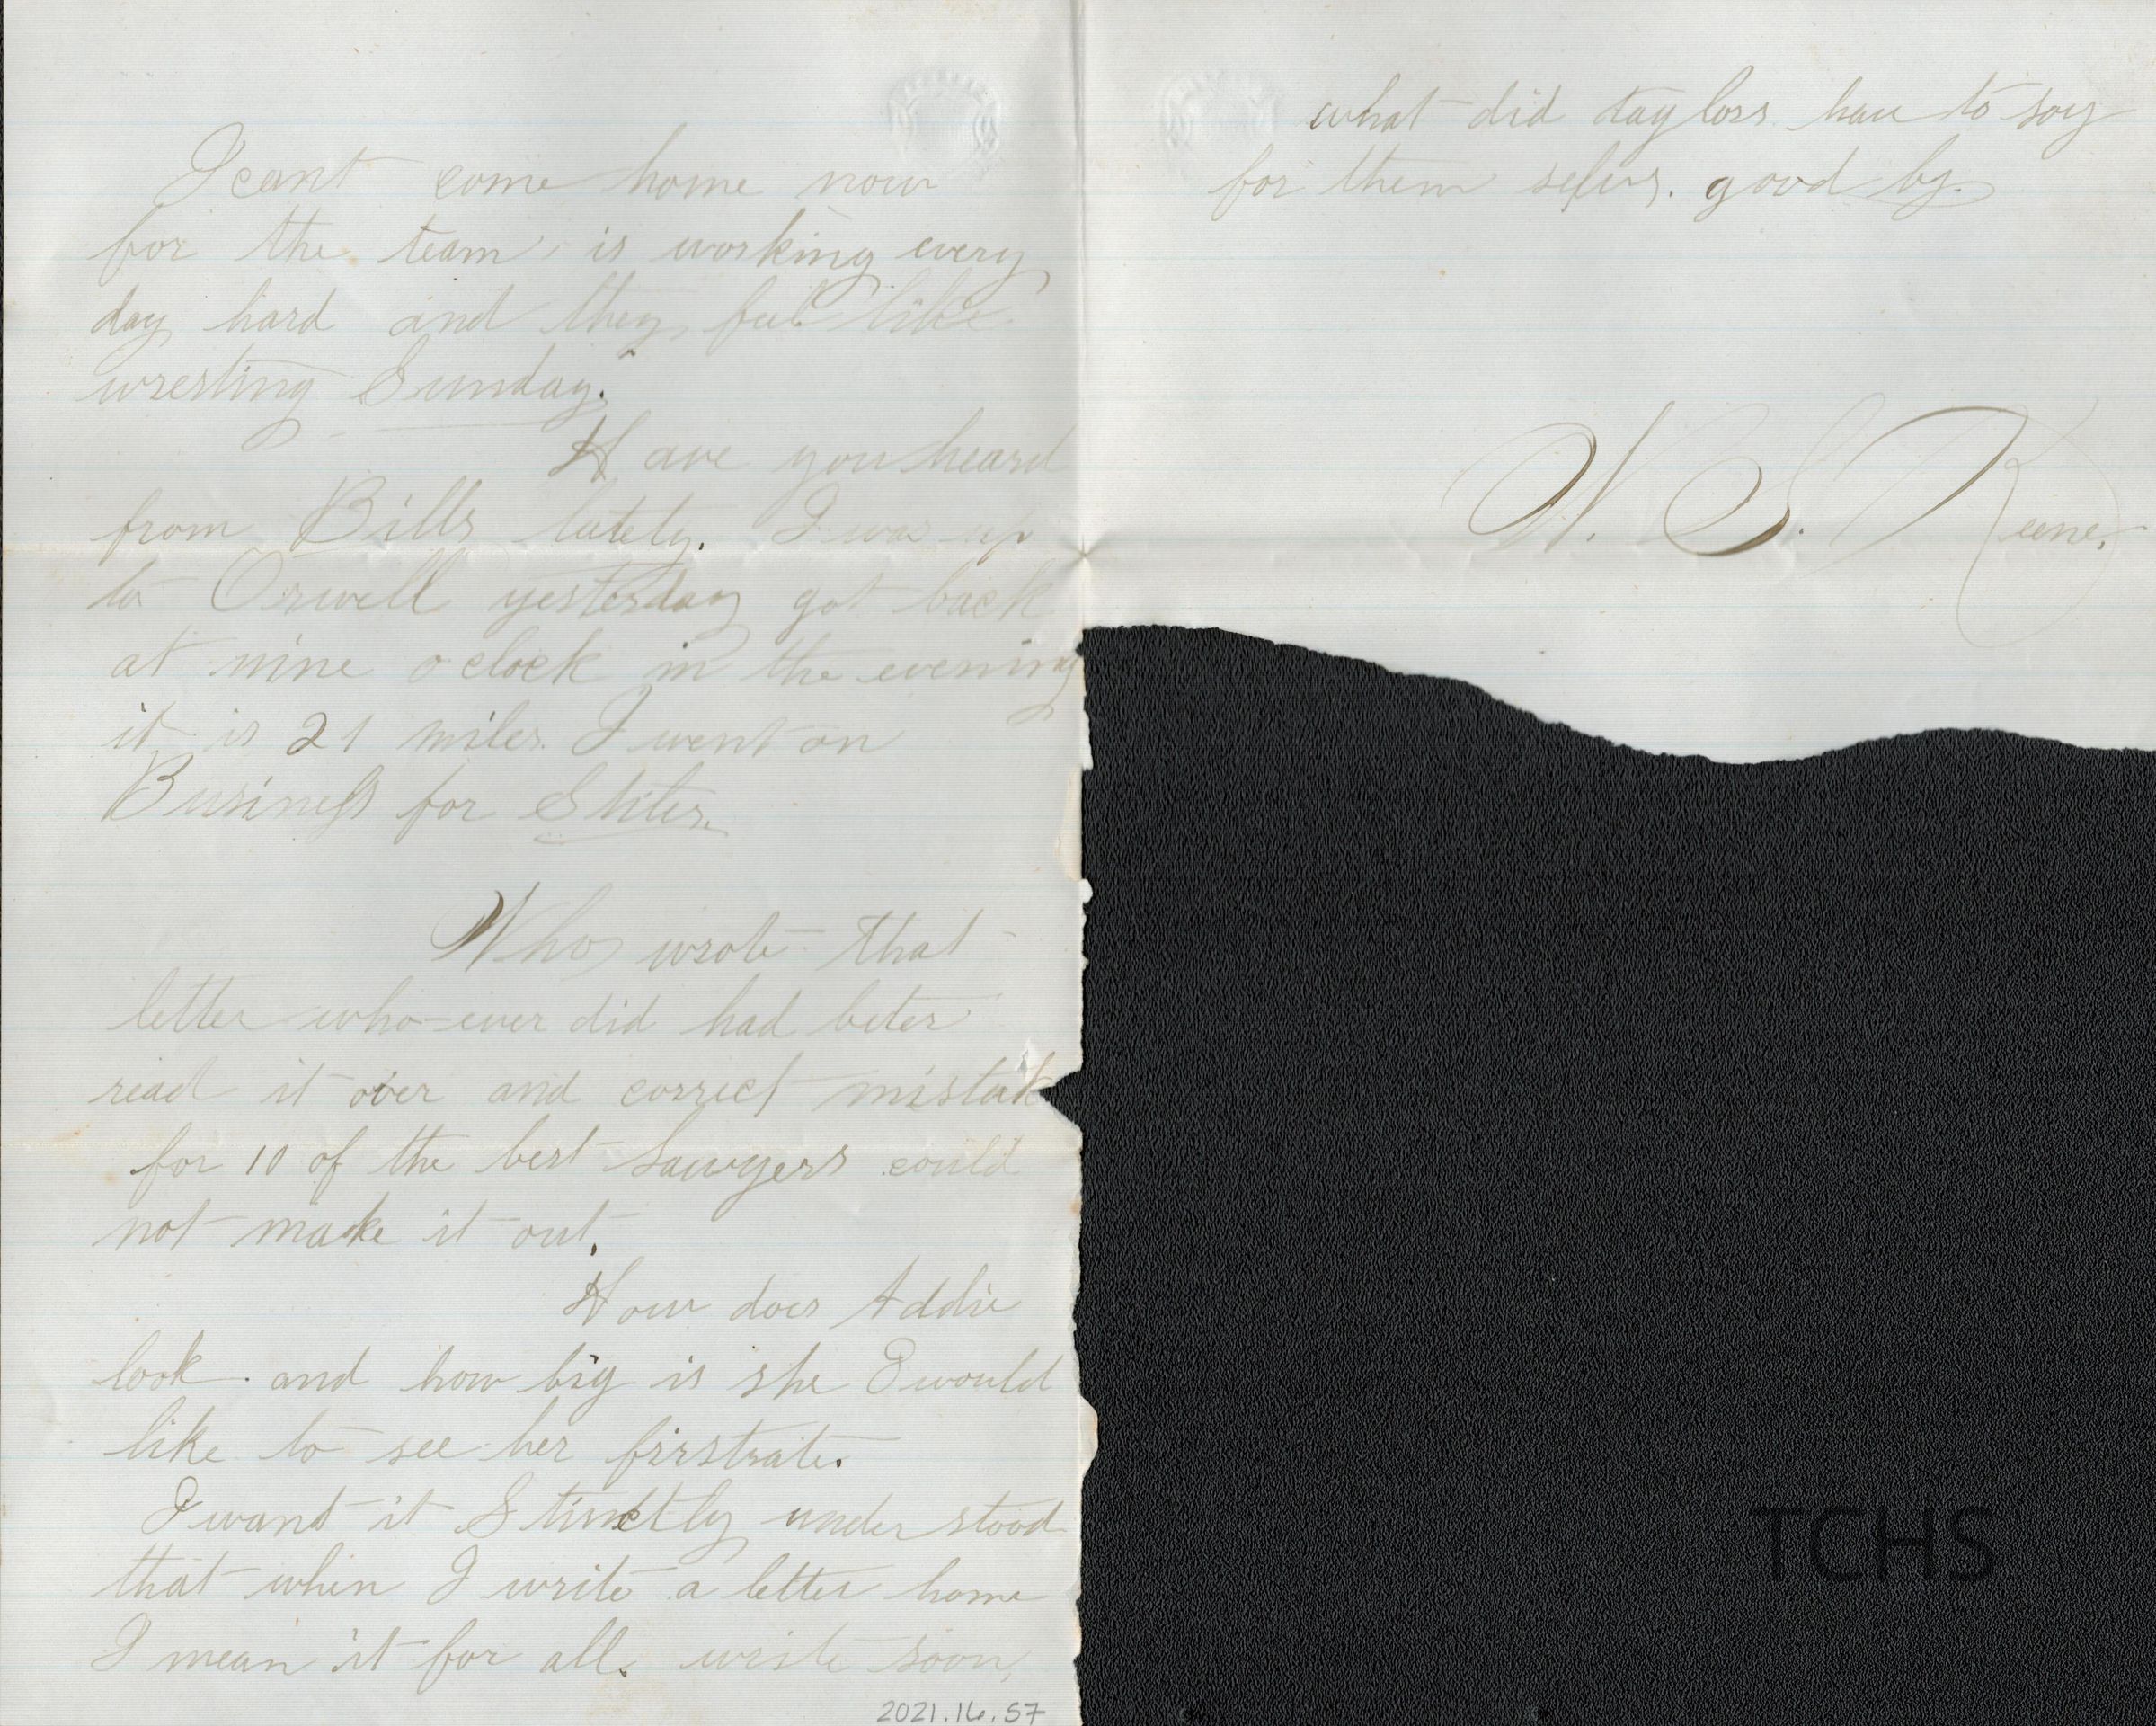 I cant come home now
for the team is working every
day hard and they feel like
wresting Sunday.
Have you heard
from Bills lately. I was up
to Orwell yesterday got back
at nine o clock in the evening
it is 21 miles. I went on
Business for
Who wrote that
letter who-ever did had beter
read it over and correct mistak
for 10 of the best Lawyers could
not make it out.
How does Addie
look. and how big is she I would
like to see her firstrate.
I want it under stood
that when I write a letter home
I mean it for all. write soon,
2021.16.57
what did taylors have to say
for them selvs. good by.
W. S. Keene.
TCHS